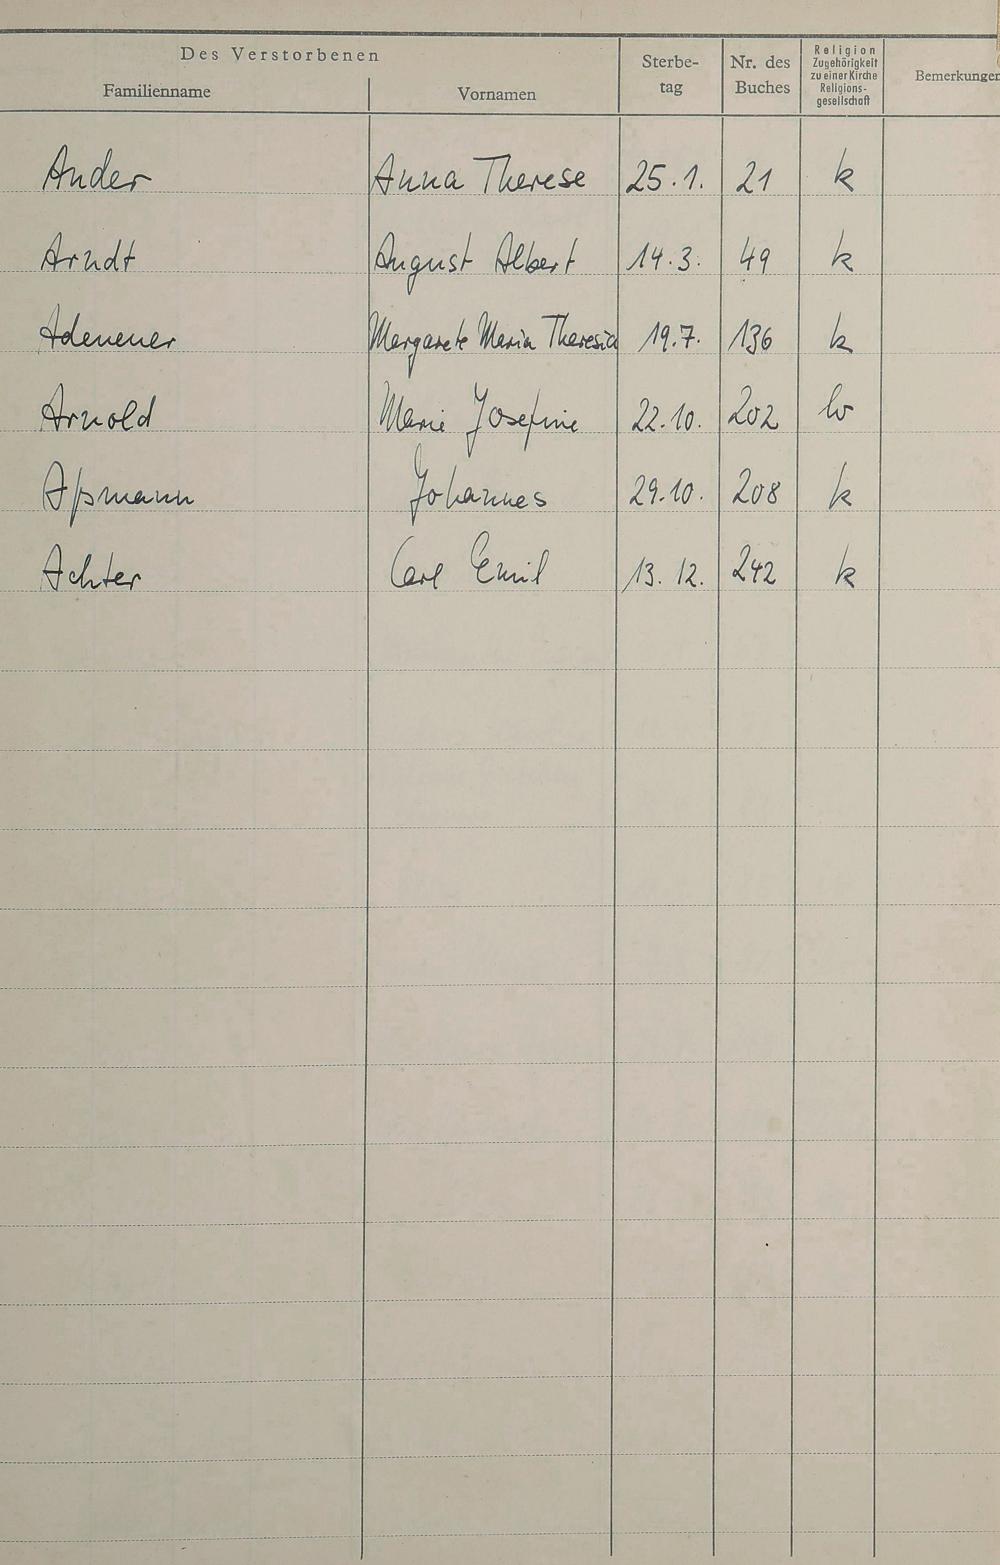 Des Verstorbenen
Familienname Vornamen Sterbe-
tag Nr. des
Buches Religion
Zugehörigkeit
zu einer Kirche
Religions-
gesellschaft Bemerkungen
Ander Anna Therese 25.1. 21 k
Arndt August Albert 14.3. 49 k
Adeneuer Margarete Maria Theresia 19.7. 136 k
Arnold Marie Josefine 22.10. 202
Aßmann Johannes 29.10. 208 k
Achter Carl Emil 13.12. 242 k